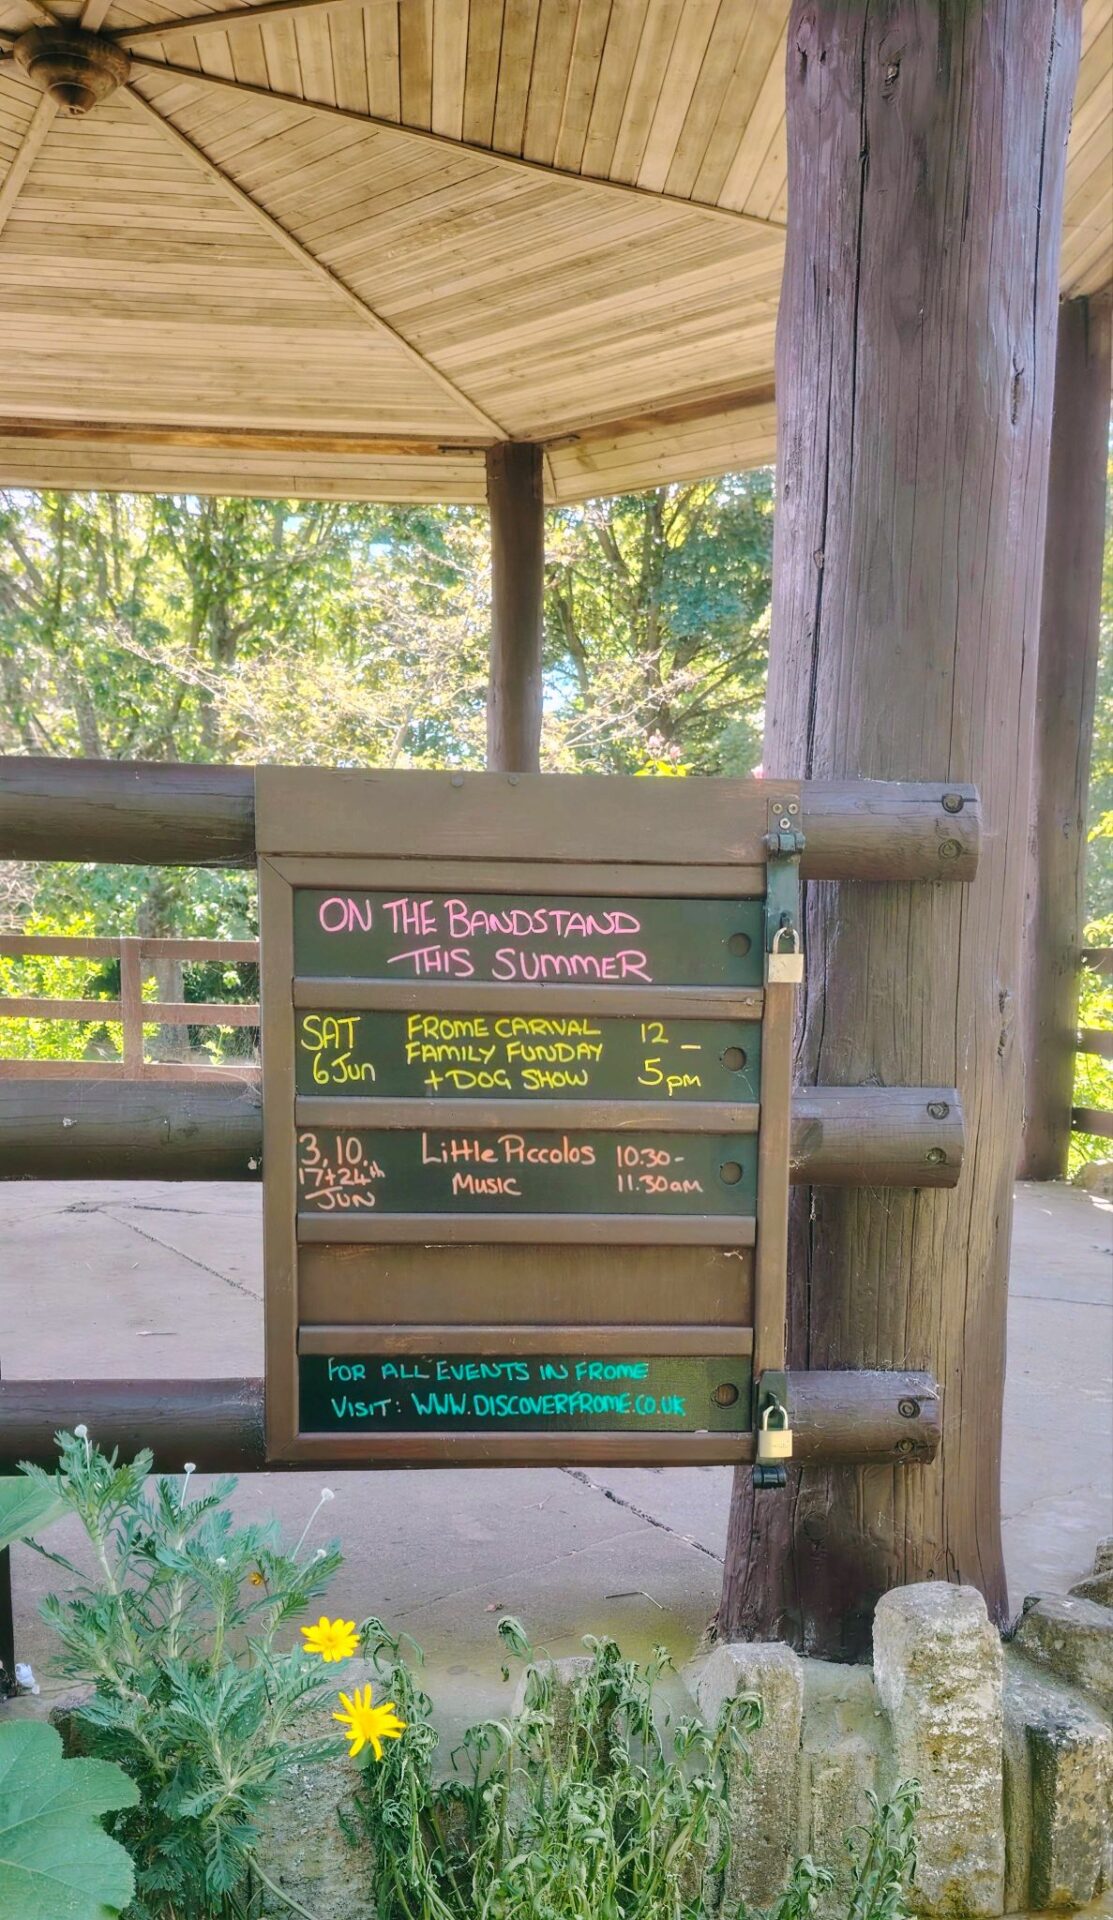 ON THE BANDSTAND
THIS SUMMER
SAT
6 Jun
FROME CARIVAL
FAMILY FUNDAY
+ DOG SHOW
12 -
5pm
3, 10,
17+24th
JUN
Little Piccolos
Music
10.30-
11.30am
FOR ALL EVENTS IN FROME
VISIT: WWW.DISCOVERFROME.CO.UK